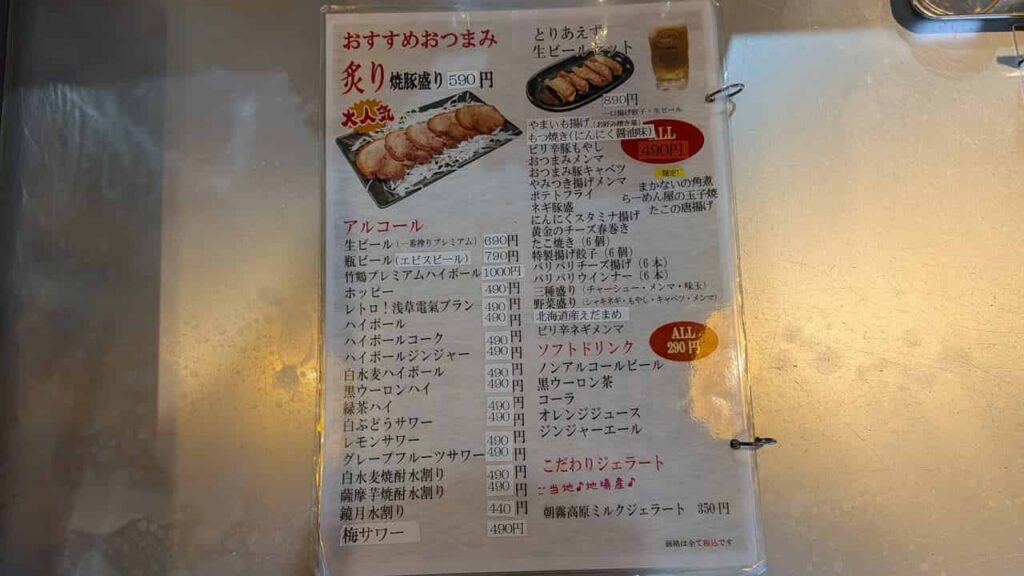 おすすめおつまみ
炙り焼豚盛り 590円
大人気
アルコール
生ビール(一番搾りプレミアム) 690円
瓶ビール(エビスビール) 790円
竹鶴プレミアムハイボール 1000円
ホッピー 490円
レトロ!浅草電氣ブラン 490円
ハイボール 490円
ハイボールコーク 490円
ハイボールジンジャー 490円
白水麦ハイボール 490円
黒ウーロンハイ 490円
緑茶ハイ 490円
白ぶどうサワー 490円
レモンサワー 490円
グレープフルーツサワー 490円
白水麦焼酎水割り 490円
薩摩芋焼酎水割り 490円
鏡月水割り 440円
梅サワー 490円
とりあえず
生ビールセット
890円
一口揚げ餃子・生ビール
やまいも揚げ(お好み焼き風)
もつ焼き(にんにく醤油味)
ピリ辛豚もやし
おつまみメンマ
おつまみ豚キャベツ
やみつき揚げメンマ
ポテトフライ
ネギ豚盛
にんにくスタミナ揚げ
黄金のチーズ春巻き
たこ焼き(6個)
特製揚げ餃子(6個)
パリパリチーズ揚げ(6本)
パリパリウインナー(6本)
三種盛り(チャーシュー・メンマ・味玉)
野菜盛り(シャキネギ・もやし・キャベツ・メンマ)
北海道産えだまめ
ピリ辛ネギメンマ
ALL
490円
限定!
まかないの角煮
らーめん屋の玉子焼
たこの唐揚げ
ソフトドリンク
ALL
290円
ノンアルコールビール
黒ウーロン茶
コーラ
オレンジジュース
ジンジャーエール
こだわりジェラート
ご当地♪地場産♪
朝霧高原ミルクジェラート 350円
価格は全て税込です